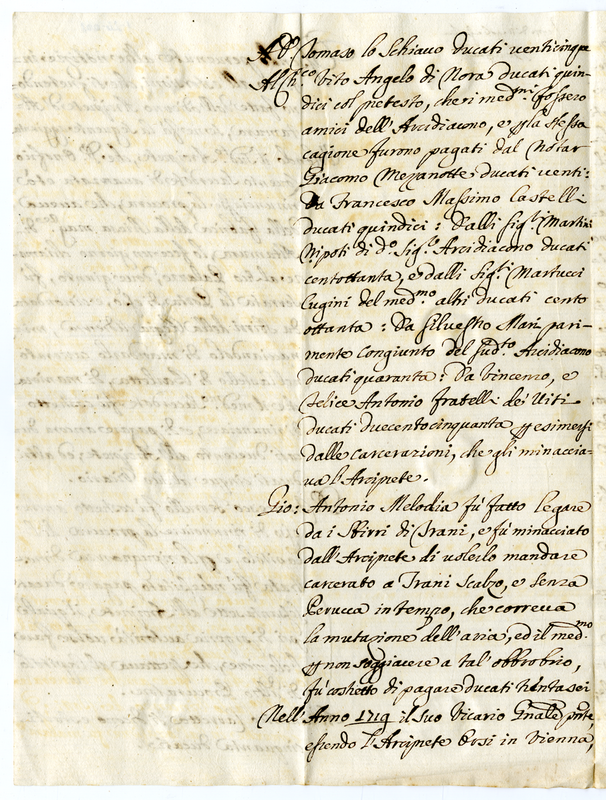 A D. Tomaso lo Schiavo ducati venticinque
Al Ch.co Vito Angelo di Nora ducati quin-
dici col pretesto, che i med.mi fossero
amici dell'Arcidiacono, e p la stessa
cagione furono pagati dal Notar
Giacomo Mezanotte ducati venti:
Da Francesco Massimo Castelli
ducati quindici: Dalli Sig.ri Martini
Nipoti di d.o Sig.re Arcidiacono ducati
centottanta, e dalli Sig.ri Martucci
Cugini del med.mo altri ducati cento
ottanta: Da Silvestro Mari pari-
mente congiunto del sud.to Arcidiacono
ducati quaranta: Da Vincenzo, e
Felice Antonio fratelli de' Viti
ducati duecentocinquanta p esimersi
dalle carcerazioni, che gli minaccia-
va l'Arciprete.
Gio: Antonio Melodia fù fatto legare
da i Sbirri di Trani, e fù minacciato
dall'Arciprete di volerlo mandare
carcerato a Trani Scalzo, e senza
Perucca in tempo, che correva
la mutazione dell'aria, ed il med.mo
p non soggiacere a tal' obbrobrio,
fù costretto di pagare ducati trenta sei
Nell'Anno 1719 il suo Vicario Gnale, pnte
essendo l'Arciprete Orsi in Vienna,